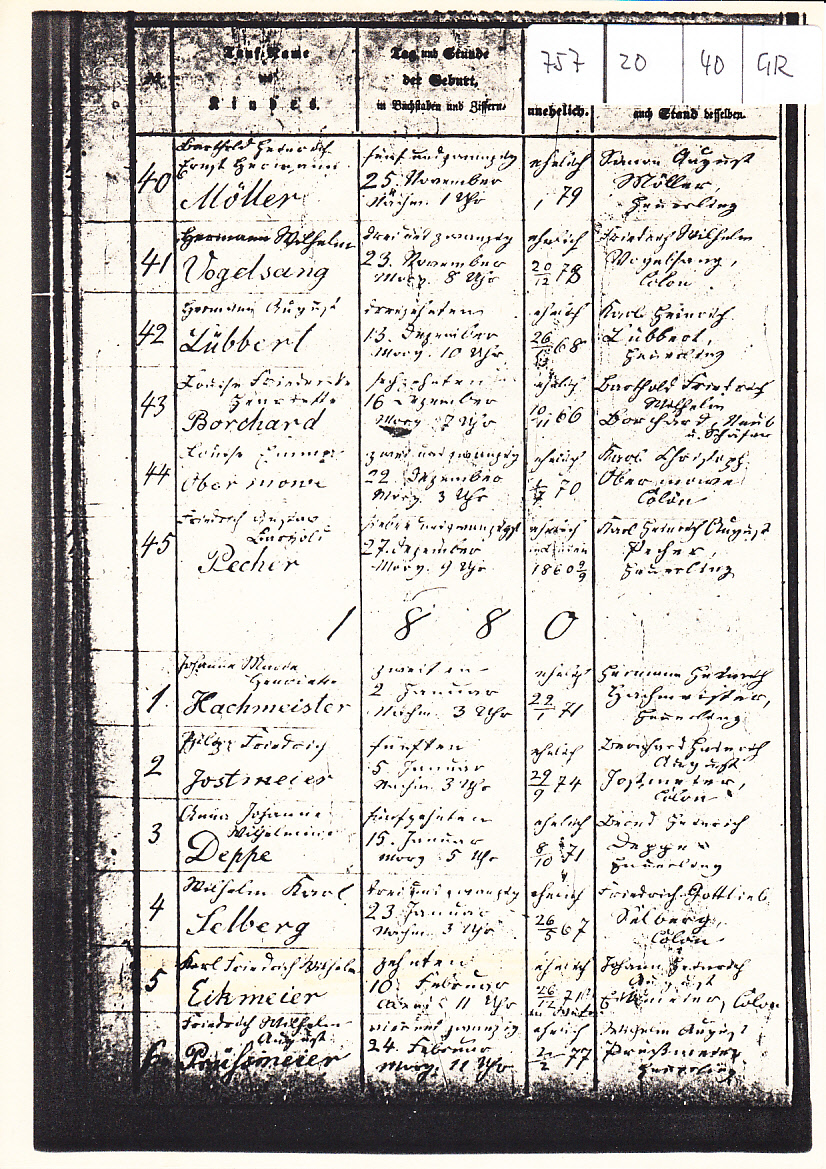 757 20 40 GR
Tauf-Name
des
Kindes.
Tag und Stunde
der Geburt,
in Buchstaben und Ziffern.
unehelich.
auch Stand desselben.
40
Barthold Heinrich
Ernst Hermann
Möller
fünf und zwanzig
25 November
Nachm. 1 Uhr
ehelich
79
Simon August
Möller,
Heuerling
41
Hermann Wilhelm
Vogelsang
drei und zwanzig
23. November
Morg. 8 Uhr
ehelich
20/12 78
Friedrich Wilhelm
Vogelsang,
Colon
42
Hermann August
Lübbert
dreizehnten
13. Dezember
Morg. 10 Uhr
ehelich
68
Karl Heinrich
Lübbert,
Heuerling
43
Louise Friederike
Henriette
Borchard
sechzehnten
16 Dezember
Morg. 7 Uhr
ehelich
10/11 66
Barthold Friedrich
Wilhelm
Borchard,
44
Louise
Obermowe
zwei und zwanzig
22 Dezember
Morg. 3 Uhr
ehelich
70
Karl Christoph
Obermowe
Colon
45
Friedrich Gustav
Barthold
Pecher
27. Dezember
Morg. 9 Uhr
ehelich
1860
Karl Heinrich August
Pecher,
Heuerling
1880
1
Johanne Marie
Henriette
Hachmeister
zweiten
2 Januar
Nachm. 3 Uhr
ehelich
29/1 71
Hermann Heinrich
Hachmeister,
Heuerling
2
Friedrich
Jostmeier
fünften
5 Januar
Nachm. 3 Uhr
ehelich
29/9 74
Bernhard Heinrich
August
Jostmeier,
Colon
3
Anna Johanne
Wilhelmine
Deppe
fünfzehnten
15. Januar
Morg. 5 Uhr
ehelich
8/10 71
Bernd Heinrich
Deppe
Heuerling
4
Wilhelm Karl
Selberg
drei und zwanzig
23 Januar
Nachm. 3 Uhr
ehelich
26/5 67
Friedrich Gottlieb
Selberg,
Colon
5
Karl Friedrich Wilhelm
Eikmeier
zehnten
10. Februar
Abends 11 Uhr
ehelich
26/12 71
Johann Heinrich
August
Eikmeier, Colon
6
Friedrich Wilhelm
August
Preußmeier
vier und zwanzig
24. Februar
Morg. 11 Uhr
ehelich
77
Wilhelm August
Preußmeier
Heuerling